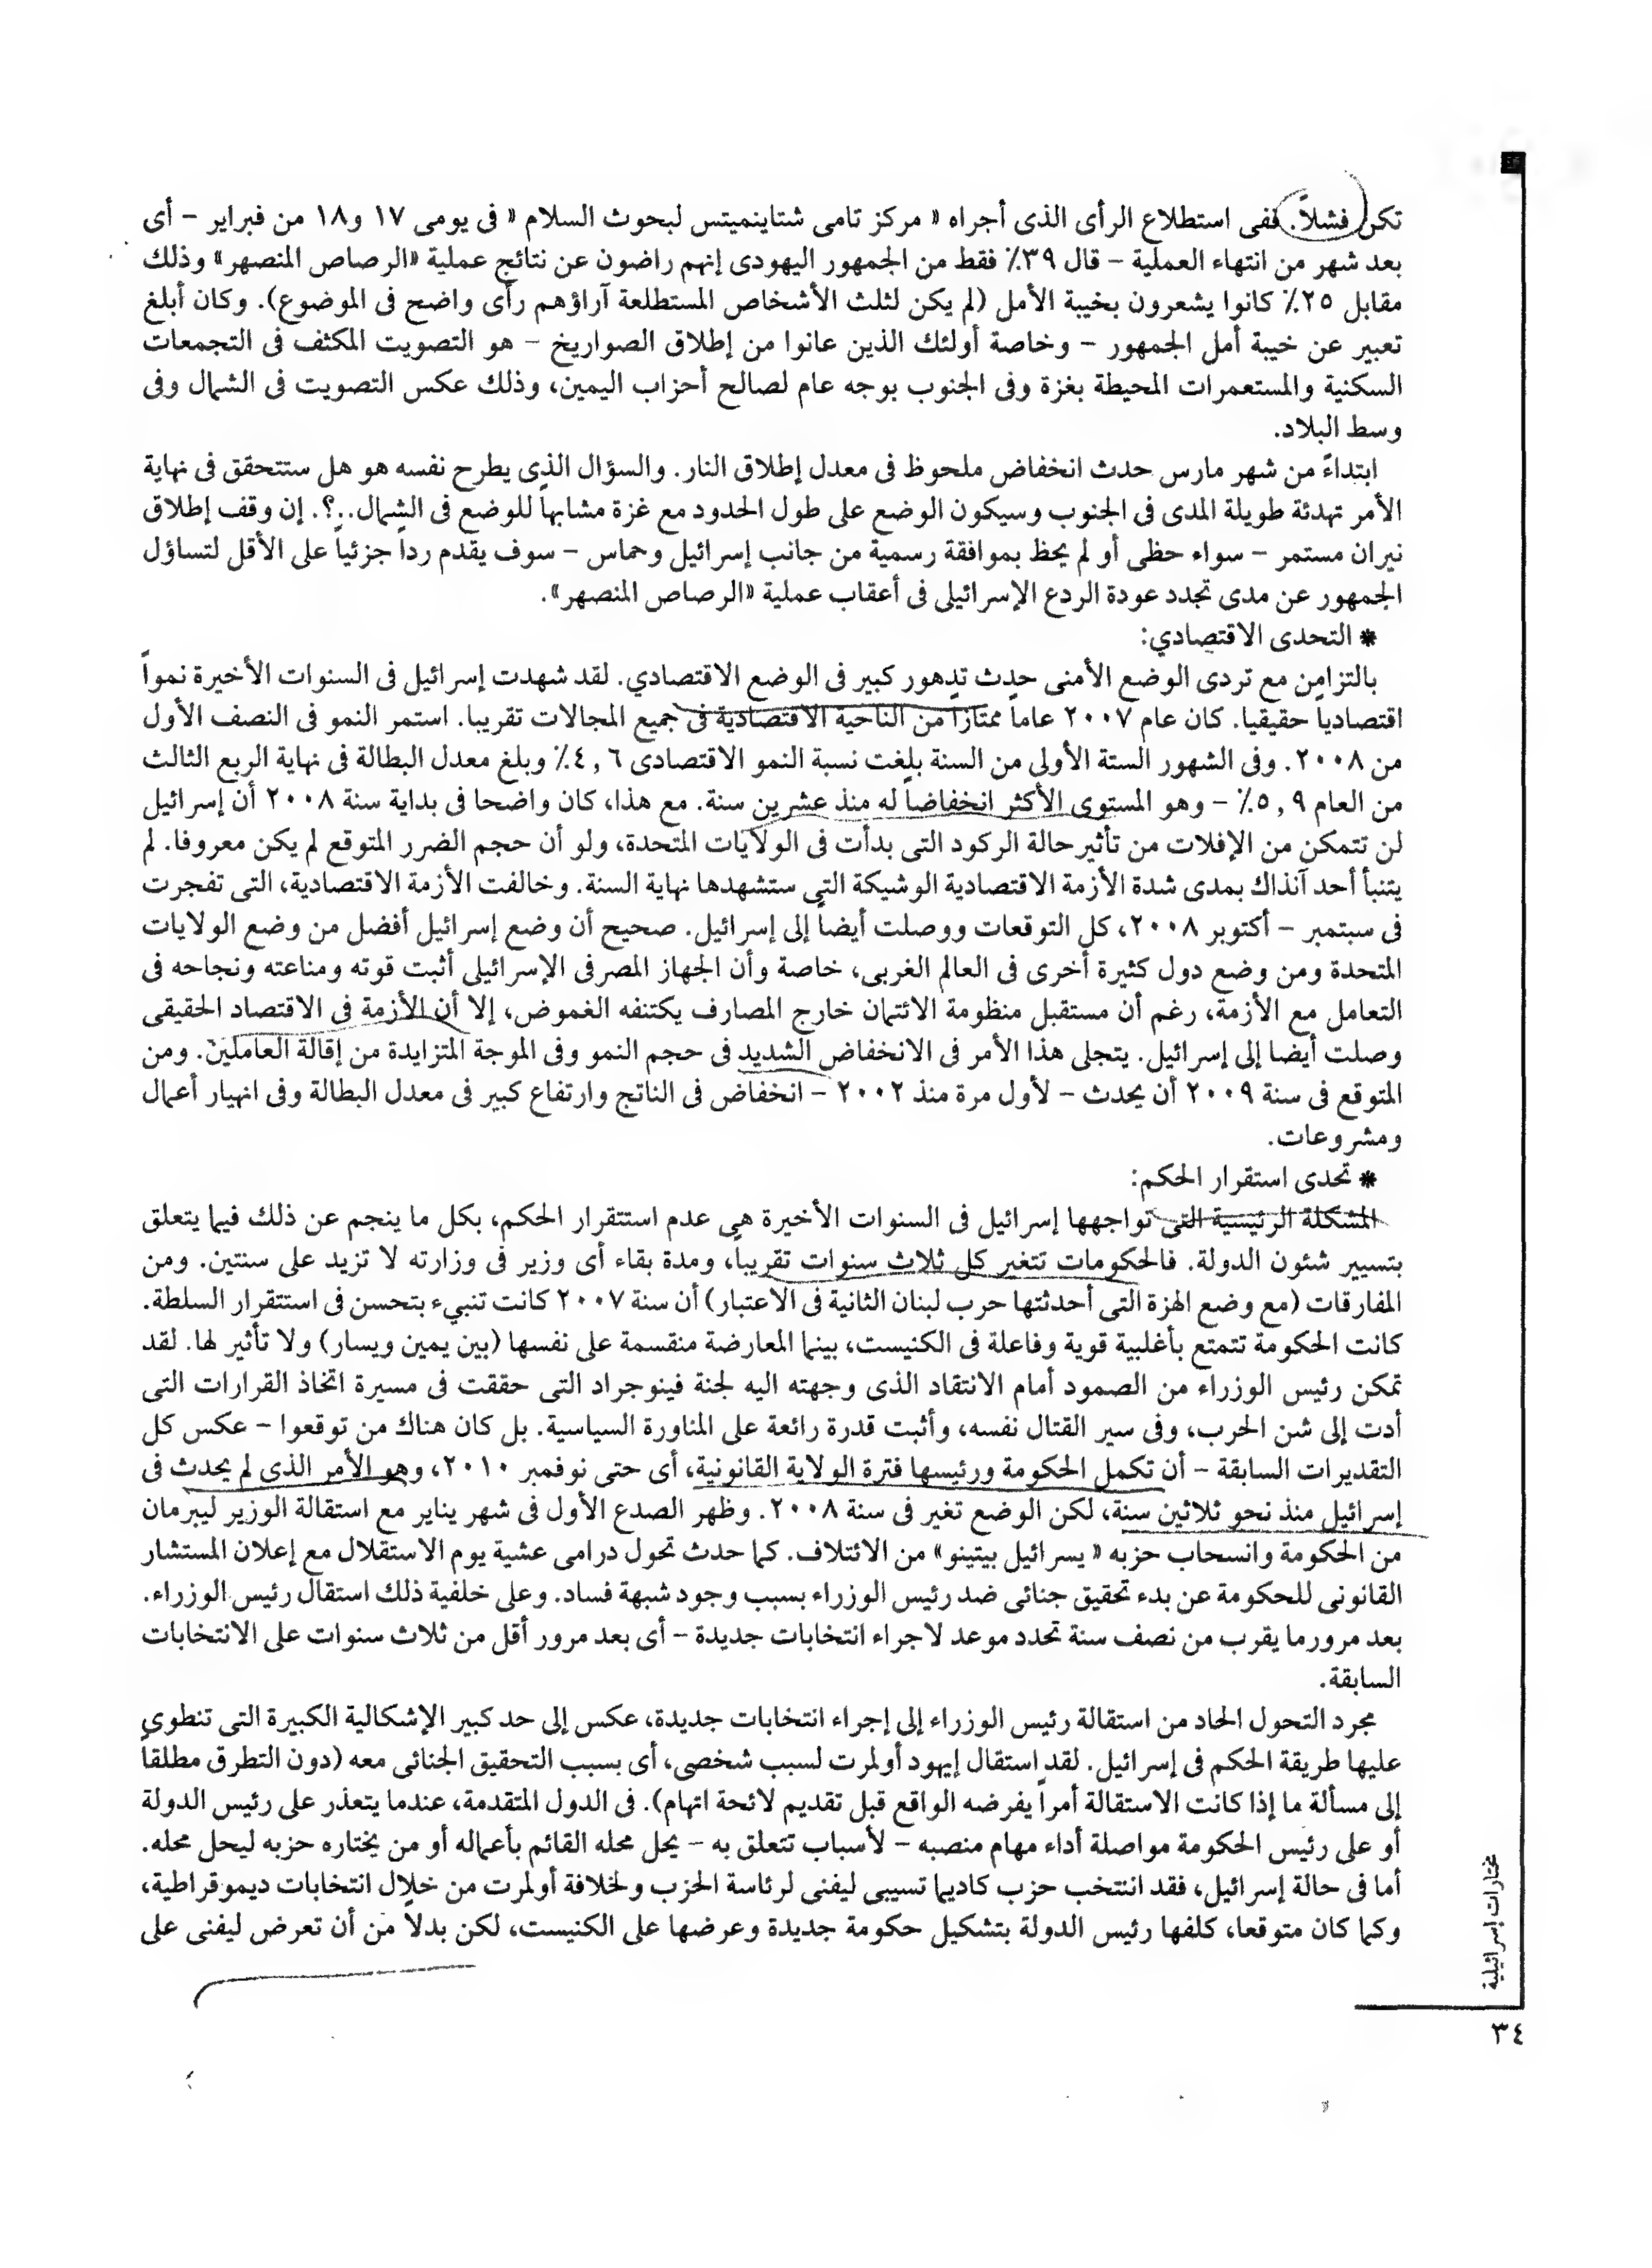 تكن فشلاً. ففى استطلاع الرأى الذى أجراه « مركز تامى شتاينميتس لبحوث السلام « فى يومى ١٧ و١٨ من فبراير – أى
بعد شهر من انتهاء العملية – قال ٣٩٪ فقط من الجمهور اليهودى إنهم راضون عن نتائج عملية «الرصاص المنصهر» وذلك
مقابل ٢٥٪ كانوا يشعرون بخيبة الأمل (لم يكن لثلث الأشخاص المستطلعة آراؤهم رأى واضح فى الموضوع). وكان أبلغ
تعبير عن خيبة أمل الجمهور – وخاصة أولئك الذين عانوا من إطلاق الصواريخ – هو التصويت المكثف فى التجمعات
السكنية والمستعمرات المحيطة بغزة وفى الجنوب بوجه عام لصالح أحزاب اليمين، وذلك عكس التصويت فى الشمال وفى
وسط البلاد.
ابتداءً من شهر مارس حدث انخفاض ملحوظ فى معدل إطلاق النار. والسؤال الذى يطرح نفسه هو هل ستتحقق فى نهاية
الأمر تهدئة طويلة المدى فى الجنوب وسيكون الوضع على طول الحدود مع غزة مشابهاً للوضع فى الشمال..؟. إن وقف إطلاق
نيران مستمر – سواء حظى أو لم يحظ بموافقة رسمية من جانب إسرائيل وحماس – سوف يقدم رداً جزئياً على الأقل لتساؤل
الجمهور عن مدى تجدد عودة الردع الإسرائيلى فى أعقاب عملية «الرصاص المنصهر».
* التحدى الاقتصادي:
بالتزامن مع تردى الوضع الأمنى حدث تدهور كبير فى الوضع الاقتصادي. لقد شهدت إسرائيل فى السنوات الأخيرة نمواً
اقتصادياً حقيقيا. كان عام ٢٠٠٧ عاماً ممتازاً من الناحية الاقتصادية فى جميع المجالات تقريبا. استمر النمو فى النصف الأول
من ٢٠٠٨. وفى الشهور الستة الأولى من السنة بلغت نسبة النمو الاقتصادى ٤,٦٪ وبلغ معدل البطالة فى نهاية الربع الثالث
من العام ٥,٩٪ – وهو المستوى الأكثر انخفاضاً له منذ عشرين سنة. مع هذا، كان واضحا فى بداية سنة ٢٠٠٨ أن إسرائيل
لن تتمكن من الإفلات من تأثير حالة الركود التى بدأت فى الولايات المتحدة، ولو أن حجم الضرر المتوقع لم يكن معروفا. لم
يتنبأ أحد آنذاك بمدى شدة الأزمة الاقتصادية الوشيكة التى ستشهدها نهاية السنة. وخالفت الأزمة الاقتصادية، التى تفجرت
فى سبتمبر – أكتوبر ٢٠٠٨، كل التوقعات ووصلت أيضاً إلى إسرائيل. صحيح أن وضع إسرائيل أفضل من وضع الولايات
المتحدة ومن وضع دول كثيرة أخرى فى العالم الغربى، خاصة وأن الجهاز المصرفى الإسرائيلى أثبت قوته ومناعته ونجاحه فى
التعامل مع الأزمة، رغم أن مستقبل منظومة الائتمان خارج المصارف يكتنفه الغموض، إلا أن الأزمة فى الاقتصاد الحقيقى
وصلت أيضا إلى إسرائيل. يتجلى هذا الأمر فى الانخفاض الشديد فى حجم النمو وفى الموجة المتزايدة من إقالة العاملين. ومن
المتوقع فى سنة ٢٠٠٩ أن يحدث – لأول مرة منذ ٢٠٠٢ – انخفاض فى الناتج وارتفاع كبير فى معدل البطالة وفى انهيار أعمال
ومشروعات.
* تحدى استقرار الحكم:
المشكلة الرئيسية التى تواجهها إسرائيل فى السنوات الأخيرة هى عدم استتقرار الحكم، بكل ما ينجم عن ذلك فيما يتعلق
بتسيير شئون الدولة. فالحكومات تتغير كل ثلاث سنوات تقريباً، ومدة بقاء أى وزير فى وزارته لا تزيد على سنتين. ومن
المفارقات (مع وضع الهزة التى أحدثتها حرب لبنان الثانية فى الاعتبار) أن سنة ٢٠٠٧ كانت تنبيء بتحسن فى استتقرار السلطة.
كانت الحكومة تتمتع بأغلبية قوية وفاعلة فى الكنيست، بينما المعارضة منقسمة على نفسها (بين يمين ويسار) ولا تأثير لها. لقد
تمكن رئيس الوزراء من الصمود أمام الانتقاد الذى وجهته اليه لجنة فينوجراد التى حققت فى مسيرة اتخاذ القرارات التى
أدت إلى شن الحرب، وفى سير القتال نفسه، وأثبت قدرة رائعة على المناورة السياسية. بل كان هناك من توقعوا – عكس كل
التقديرات السابقة – أن تكمل الحكومة ورئيسها فترة الولاية القانونية، أى حتى نوفمبر ٢٠١٠، وهو الأمر الذى لم يحدث فى
إسرائيل منذ نحو ثلاثين سنة، لكن الوضع تغير فى سنة ٢٠٠٨. وظهر الصدع الأول فى شهر يناير مع استقالة الوزير ليبرمان
من الحكومة وانسحاب حزبه « يسرائيل بيتينو» من الائتلاف. كما حدث تحول درامى عشية يوم الاستقلال مع إعلان المستشار
القانونى للحكومة عن بدء تحقيق جنائى ضد رئيس الوزراء بسبب وجود شبهة فساد. وعلى خلفية ذلك استقال رئيس الوزراء.
بعد مرورما يقرب من نصف سنة تحدد موعد لاجراء انتخابات جديدة – أى بعد مرور أقل من ثلاث سنوات على الانتخابات
السابقة.
مجرد التحول الحاد من استقالة رئيس الوزراء إلى إجراء انتخابات جديدة، عكس إلى حد كبير الإشكالية الكبيرة التى تنطوى
عليها طريقة الحكم فى إسرائيل. لقد استقال إيهود أولمرت لسبب شخصى، أى بسبب التحقيق الجنائى معه (دون التطرق مطلقاً
إلى مسألة ما إذا كانت الاستقالة أمراً يفرضه الواقع قبل تقديم لائحة اتهام). فى الدول المتقدمة، عندما يتعذر على رئيس الدولة
أو على رئيس الحكومة مواصلة أداء مهام منصبه – لأسباب تتعلق به – يحل محله القائم بأعماله أو من يختاره حزبه ليحل محله.
أما فى حالة إسرائيل، فقد انتتخب حزب كاديما تسيبى ليفنى لرئاسة الحزب ولخلافة أولمرت من خلال انتخابات ديموقراطية،
وكما كان متوقعا، كلفها رئيس الدولة بتشكيل حكومة جديدة وعرضها على الكنيست، لكن بدلاً من أن تعرض ليفنى على
مختارات إسرائيلية
٣٤